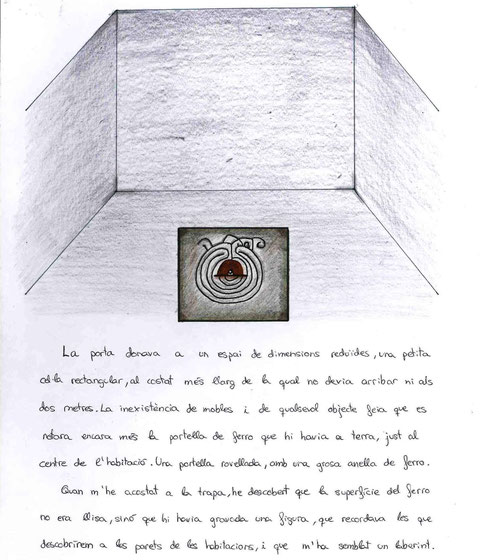 La porta donava a un espai de dimensions reduïdes, una petita
cel·la rectangular, al costat més llarg de la qual no devia arribar ni als
dos metres. La inexistència de mobles i de qualsevol objecte feia que es
notara encara més la portella de ferro que hi havia a terra, just al
centre de l'habitació. Una portella rovellada, amb una grossa anella de ferro.
Quan m'he acostat a la trapa, he descobert que la superfície del ferro
no era llisa, sinó que hi havia gravada una figura, que recordava les que
descobrírem a les parets de les habitacions, i que m'ha semblat un laberint.